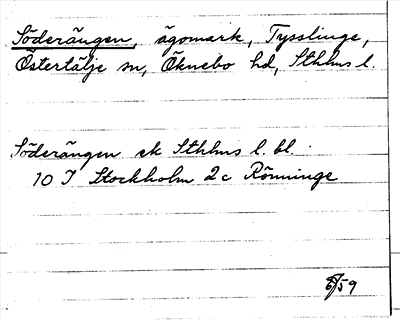 Söderängen, ägomark, Tysslinge,
Östertälje sn, Öknebo hd, Sthlms l.
Söderängen ek Sthlms l. bl.
10 I Stockholm 2c Rönninge